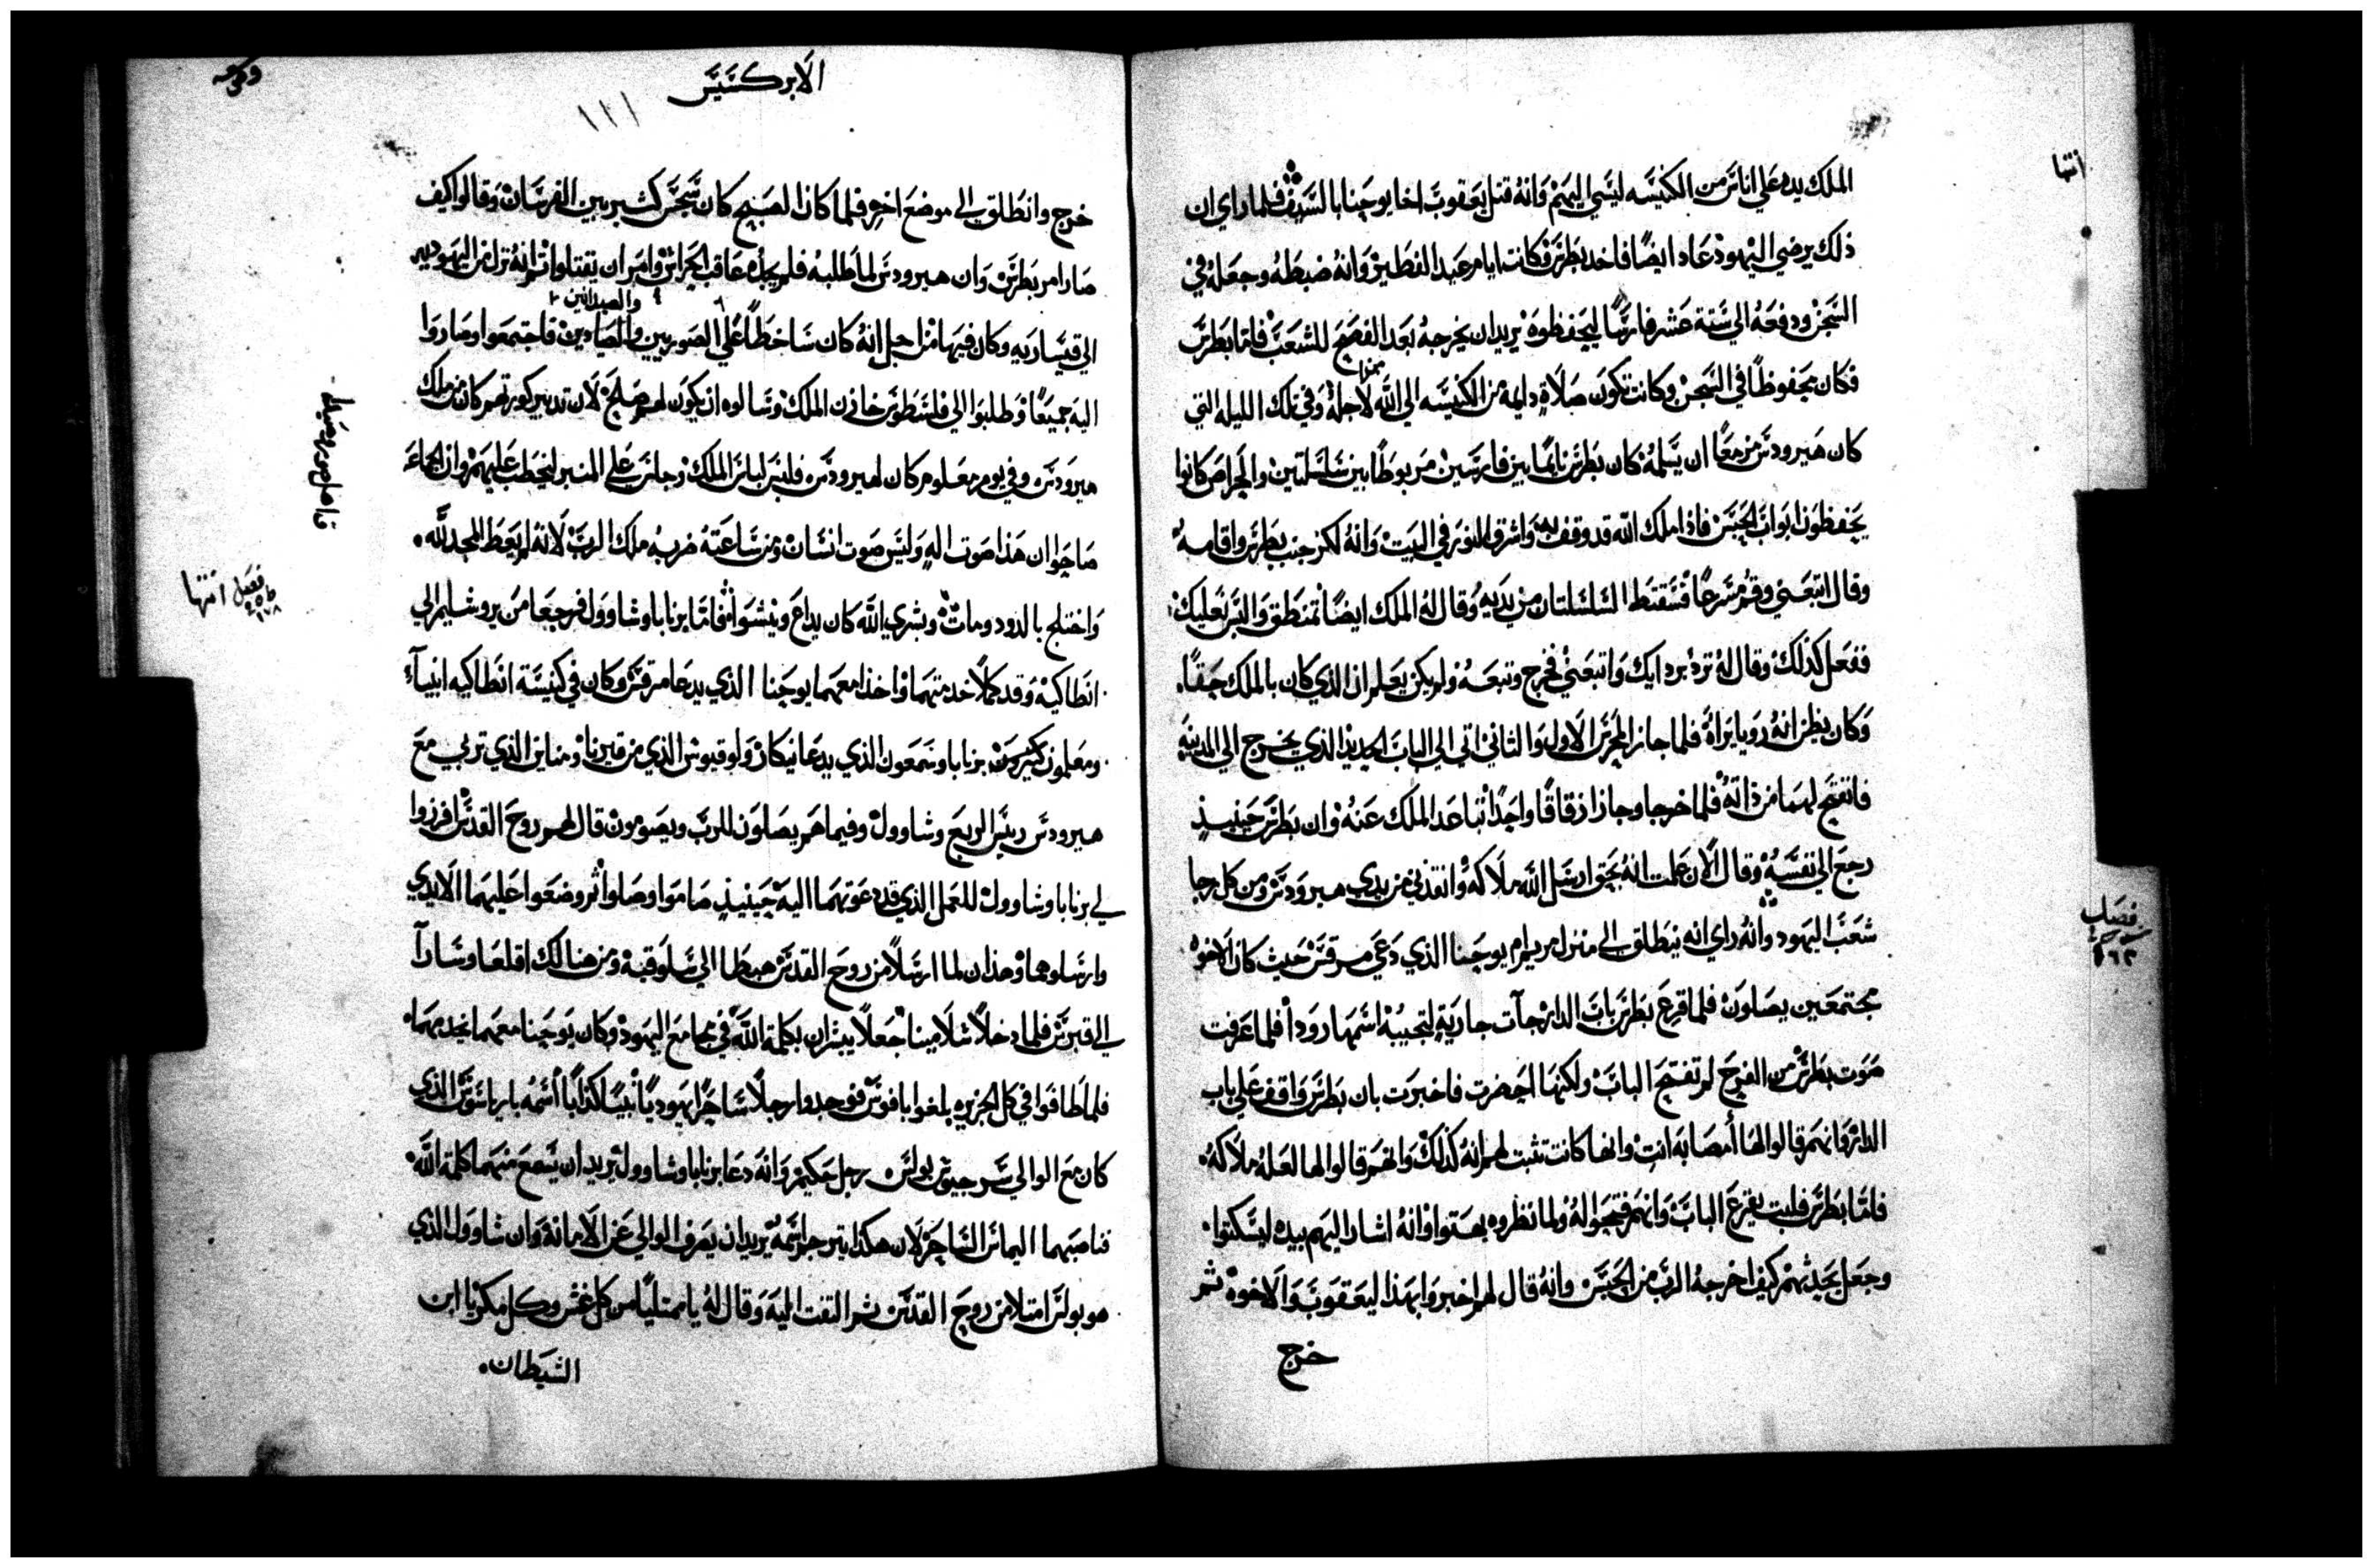 انتها
الملك يده علي اناس من الكنيسه ليسي اليهم وانه قتل يعقوب اخا يوحنا بالسيف فلما راي ان
ذلك يرضي اليهود عاد ايضًا فاخد بطرس وكانت ايام عيد الفطير وانه ضبطه وجعله في
السجن ودفعه الي ستة عشر فارسًا ليحفظوه يريد ان يخرجه بعد الفصح للشعب فاما بطرس
فكان محفوظًا في السجن وكانت تكون صلاة دايمه من الكنيسه الي الله لاجله وفي تلك الليله التي
كان هيرودس مزمعًا ان يسلمه كان بطرس نايمًا بين فارسين مربوطًا بين سلسلتين والحراص كانوا
يحفظون ابواب الحبس فاذا ملاك الله قد وقف به واشرق النور في البيت وانه لكز جنب بطرس واقامه
وقال اتبعني وقم مسرعًا فسقطة السلسلتان من يديه وقال له الملاك ايضًا تمنطق والبس نعليك
ففعل كذلك وقال له ترد بردايك واتبعني فخرج وتبعه ولم يكن يعلم ان الذي كان بالملاك حقًا
وكان يظن انه رويا يراه فلما جاز المحرس الاول والثاني اتي الي الباب الحديد الذي يخرج الي المدينه
فانفتح لهما من ذاته فلما خرجا وجازا زقاقًا واحدًا تباعد الملاك عنه وان بطرس حينيذ
رجع الي نفسه وقال الان علمت انه بحق ارسل الله ملاكه وانقذني من يدي هيرودس ومن كل رجا
شعب اليهود وانه راي انه ينطلق الي منزل مريم ام يوحنا الذي دعي مرقس حيث كان الاخوه
مجتمعين يصلون فلما قرع بطرس باب الدار جآت جارية لتجيبه اسمها رودا فلما عرفت
صوت بطرس من الفرح لم تفتح الباب ولكنها احضرت فاخبرت بان بطرس واقف علي باب
الدار وانهم قالوا لها أمصابه انت وانها كانت تثبت لهم انه كذلك وانهم قالوا لها لعله ملاكه
فاما بطرس فلبث يقرع الباب وانهم فتحوا له ولما نظروه بهتوا وانه اشار اليهم بيده ليسكتوا
وجعل يحدثهم كيف اخرجه الرب من الحبس وانه قال لهم اخبروا بهذا ليعقوب والاخوه ثم
خرج
فصل
الابركسيس
١١١
خرج وانطلق الي موضع اخر فلما كان الصبح كان سجس كثير بين الفرسان وقالوا كيف
صار امر بطرس وان هيرودس لما طلبه فلم يجده عاقب الحراس وامر ان يقتلوا ثم انه نزل من اليهوديه
والصيدانين
الي قيساريه وكان فيها من اجل انه كان ساخطًا علي الصوريين والصيادين فاجتمعوا وصاروا
اليه جميعًا وطلبوا الي فلسطوس خازن الملك وسالوه ان يكون لهم صلح لان تدبير كورتهم كان من ملك
هيرودس وفي يوم معلوم كان لهيرودس فلبس لباس الملك وجلس علي المنبر ليخطب عليهم وان الجماعه
صاحوا ان هذا صوت اله وليس صوت انسان ومن ساعته ضربه ملاك الرب لانه لم يعط المجد لله
واختلج بالدود ومات وبشري الله كان يداع وينشوا فاما برنابا وشاوول فرجعا من يروشليم الي
انطاكيه وقد كملا خدمتهما واخذا معهما يوحنا الذي يدعا مرقس وكان في كنيسة انطاكيه انبيآء
ومعلمون كثيرون برنابا وسمعون الذي يدعا نيكار ولوقيوس الذي من قيرنا ومناين الذي تربي مع
هيرودس ريس الربع وشاوول وفيما هم يصلون للرب ويصومون قال لهم روح القدس افرزوا
لي برنابا وشاوول للعمل الذي قد دعوتهما اليه حينيذ صاموا وصلوا ثم وضعوا عليهما الايدي
وارسلوهما وهذان لما ارسلا من روح القدس هبطا الي سلوقيه ومن هنالك اقلعا وسارآ
الي قبرس فلما دخلا سلامينا جعلا يبشران بكلمة الله في مجامع اليهود وكان يوحنا معهما يخدمهما
فلما طافوا في كل الجزيره بلغوا بافوس فوجدوا رجلًا ساحرًا يهوديًا نبيًا كذابًا اسمه بارياسوس الذي
كان مع الوالي سرجيوس بولس رجل حكيم وانه دعا برنابا وشاوول يريد ان يسمع منهما كلمة الله
فناصبهما اليماس الساحر لان هكذا يترجم اسمه يريد ان يصرف الوالي عن الامانه وان شاوول الذي
هو بولس امتلا من روح القدس ثم التفت اليه وقال له يا ممتليًا من كل غش وكل مكر يا ابن
الشيطان
فصل انتها